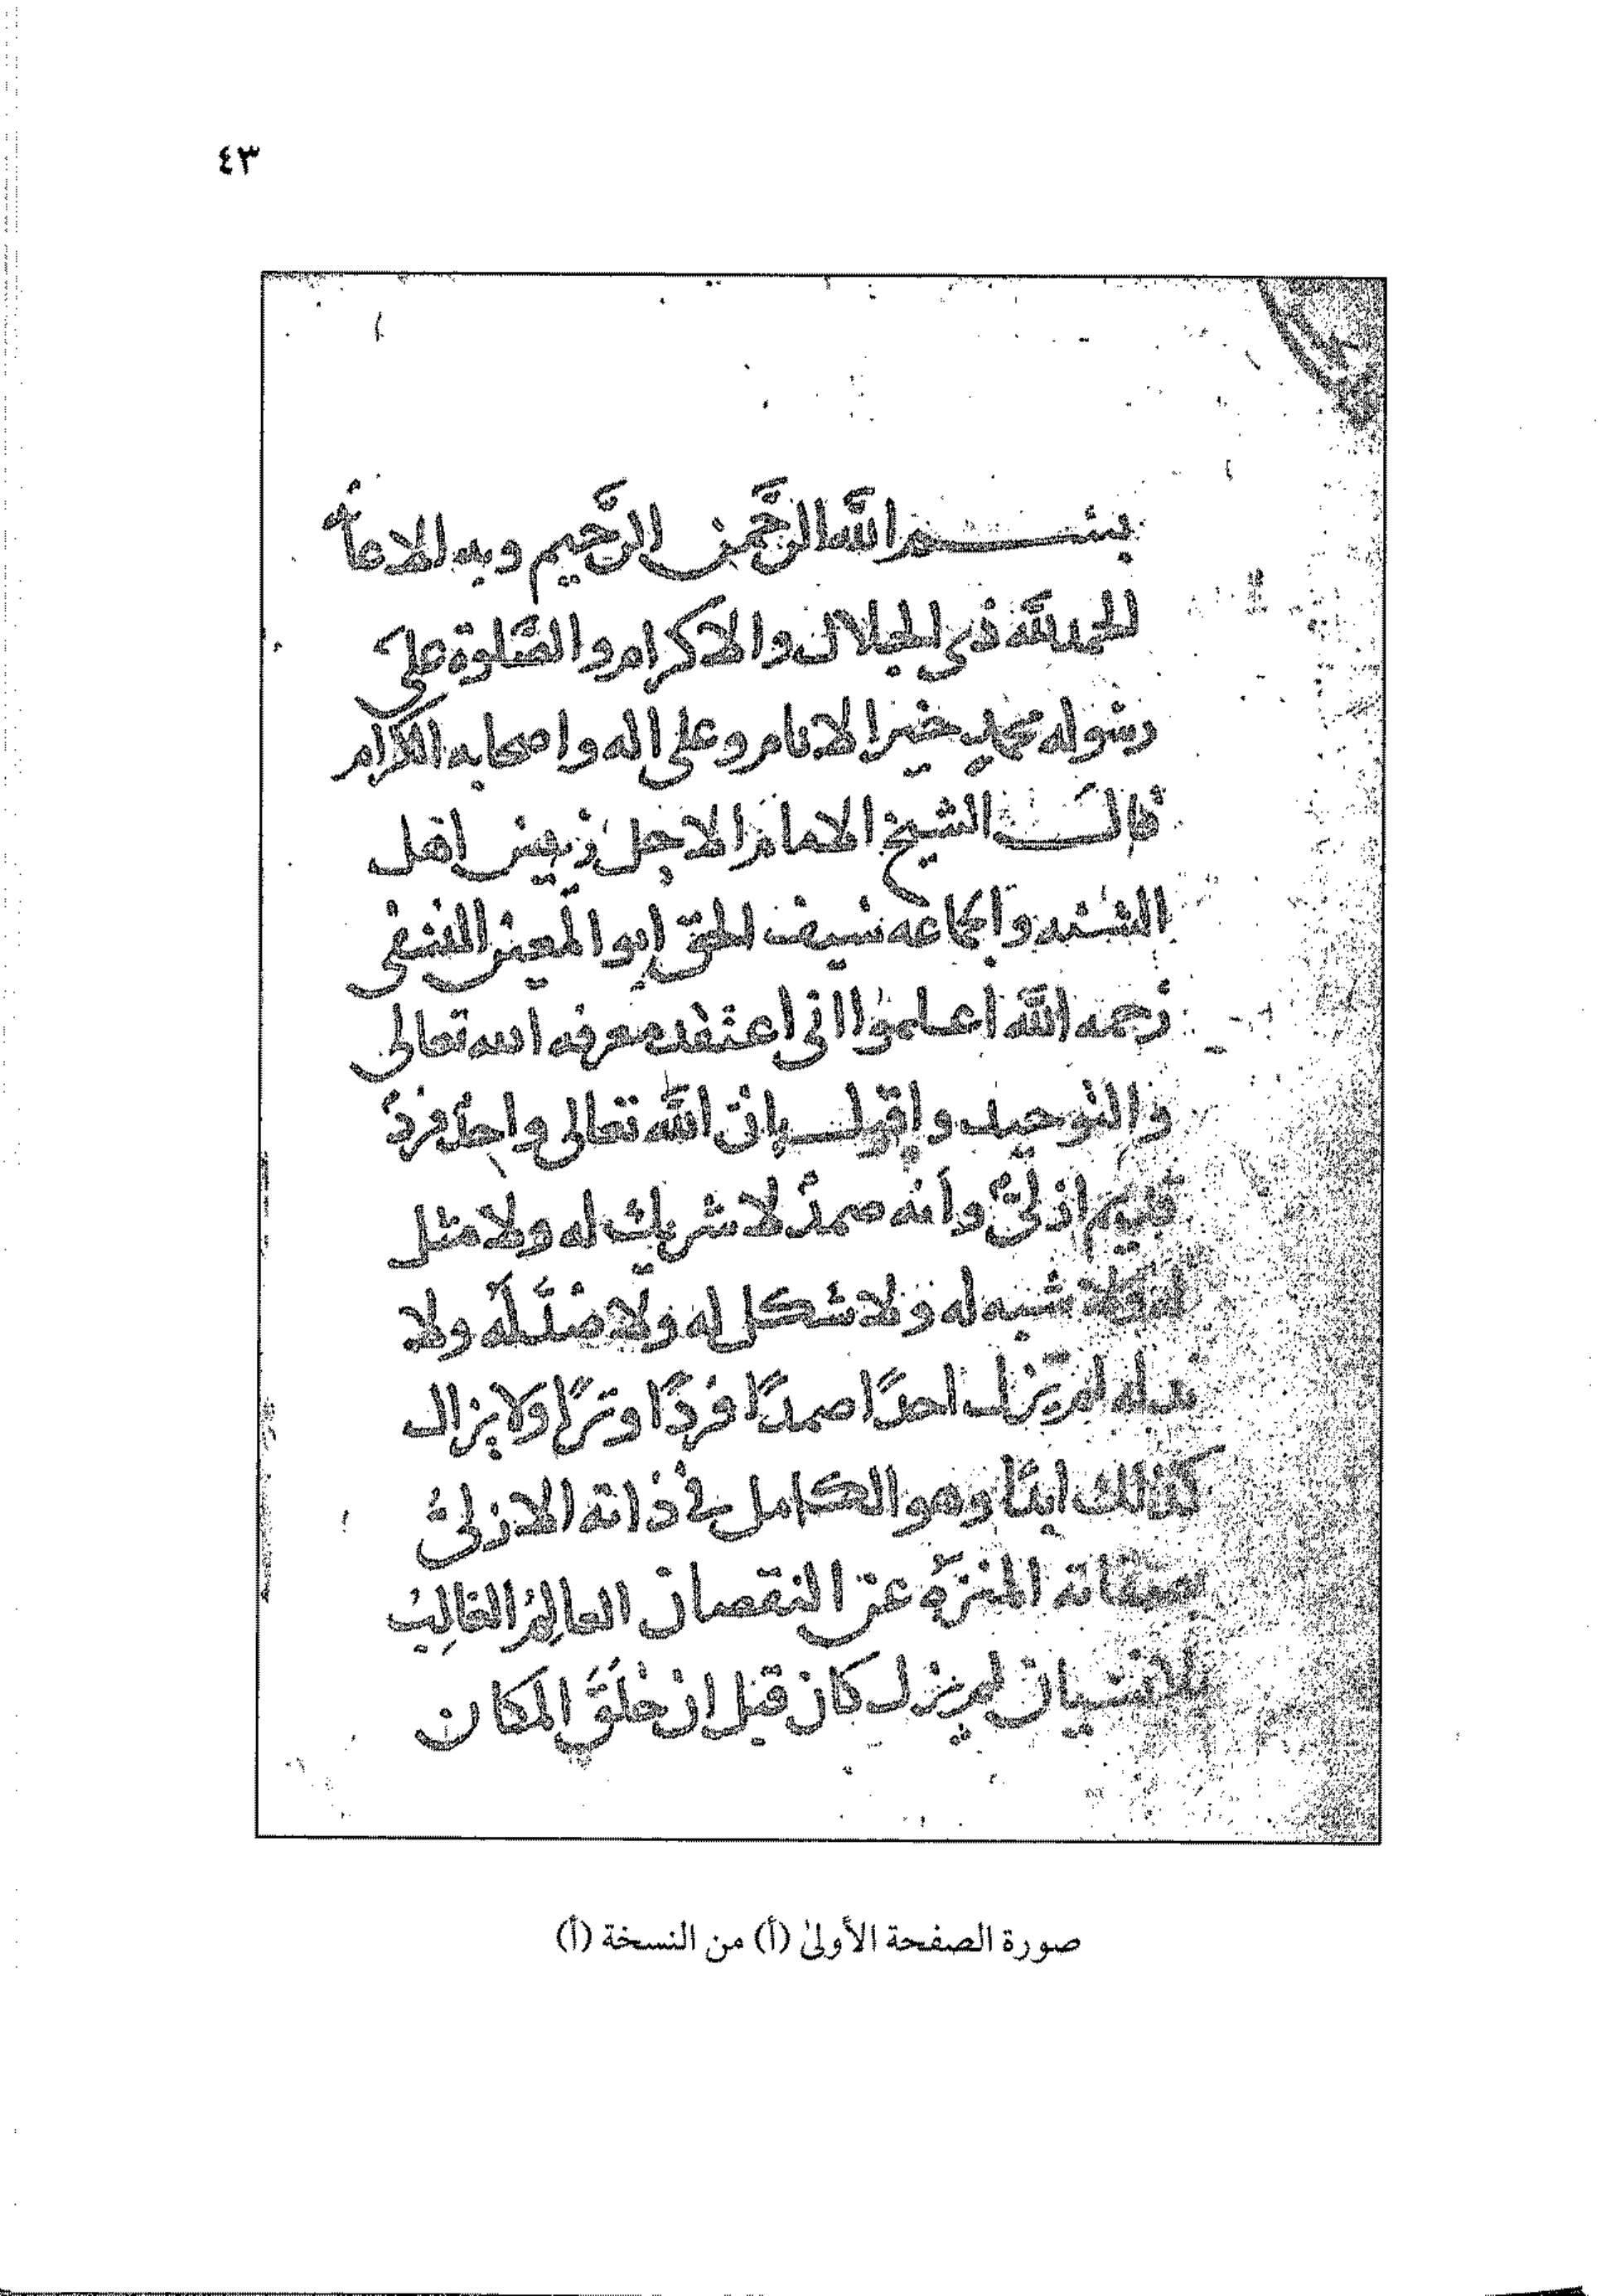 ٤٣
بسم الله الرحمن الرحيم وبه الاعانه
الحمد لله ذي الجلال والاكرام والصلوة على
رسوله محمد خير الانام وعلى اله واصحابه الكرام
قال الشيخ الامام الاجل زين اهل
السنه والجماعه سيف الحق ابو المعين النسفي
رحمه الله اعلموا اني اعتقد معرفه الله تعالى
والتوحيد واقول بان الله تعالى واحدٌ فردٌ
قديم ازليٌّ وانه صمدٌ لا شريك له ولا مثل
له ولا شبه له ولا شكل له ولا ضدَّ له ولا
ند له لم يزل احدًا صمدًا فردًا وترًا ولا يزال
كذلك ابدًا وهو الكامل في ذاته الازليُّ
بصفاته المنزه عن النقصان العالِمُ الغالِبُ
بلا نسيان لم يزل كان قبل ان خَلَقَ المكان
صورة الصفحة الأولىٰ (أ) من النسخة (أ)